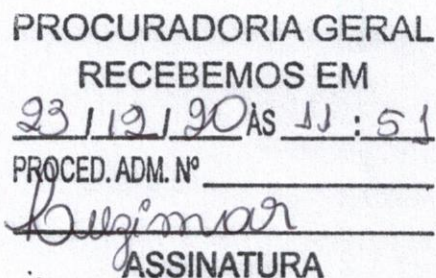 PROCURADORIA GERAL
RECEBEMOS EM
23/12/20 ÀS 11:51
PROCED. ADM. Nº
Luzimar
ASSINATURA